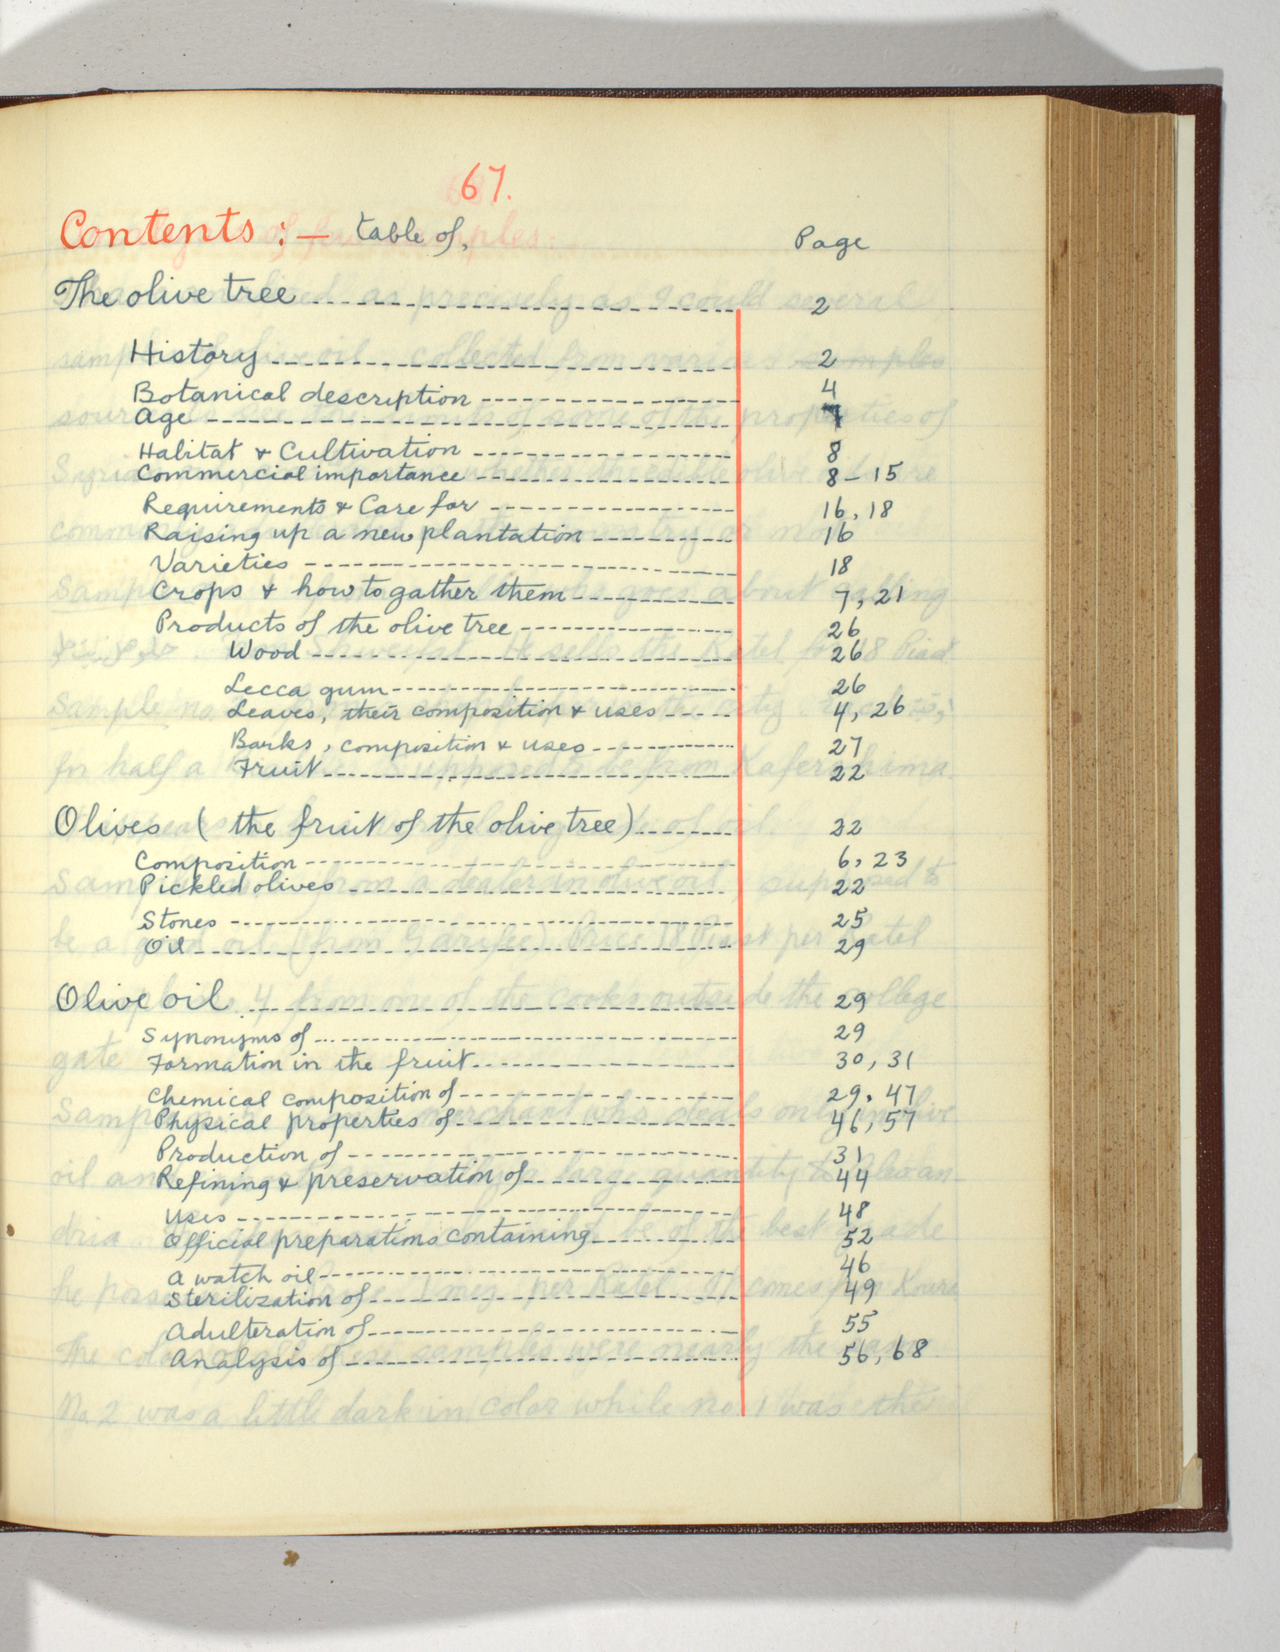 67.
Contents :— table of,
Page
The olive tree 2
History 2
Botanical description 4
Age 7
Habitat & Cultivation 8
Commercial importance 8–15
Requirements & Care for 16, 18
Raising up a new plantation 16
Varieties 18
Crops & how to gather them 7, 21
Products of the olive tree 26
Wood 26
Lecca gum 26
Leaves, their composition & uses 4, 26
Barks, composition & uses 27
Fruit 22
Olives (the fruit of the olive tree) 22
Composition 6, 23
Pickled olives 22
Stones 25
Oil 29
Olive oil 29
Synonyms of 29
Formation in the fruit 30, 31
Chemical composition of 29, 47
Physical properties of 46, 57
Production of 31
Refining & preservation of 44
Uses 48
Official preparations containing 52
A watch oil 46
Sterilization of 49
Adulteration of 55
Analysis of 56, 68